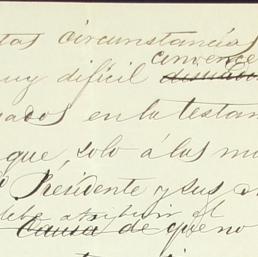 tas circunstancias
convence
uy difícil disuadi
ados en la testam
que, solo á las m
Presidente y sus
debe atribuir el
Causa de que no